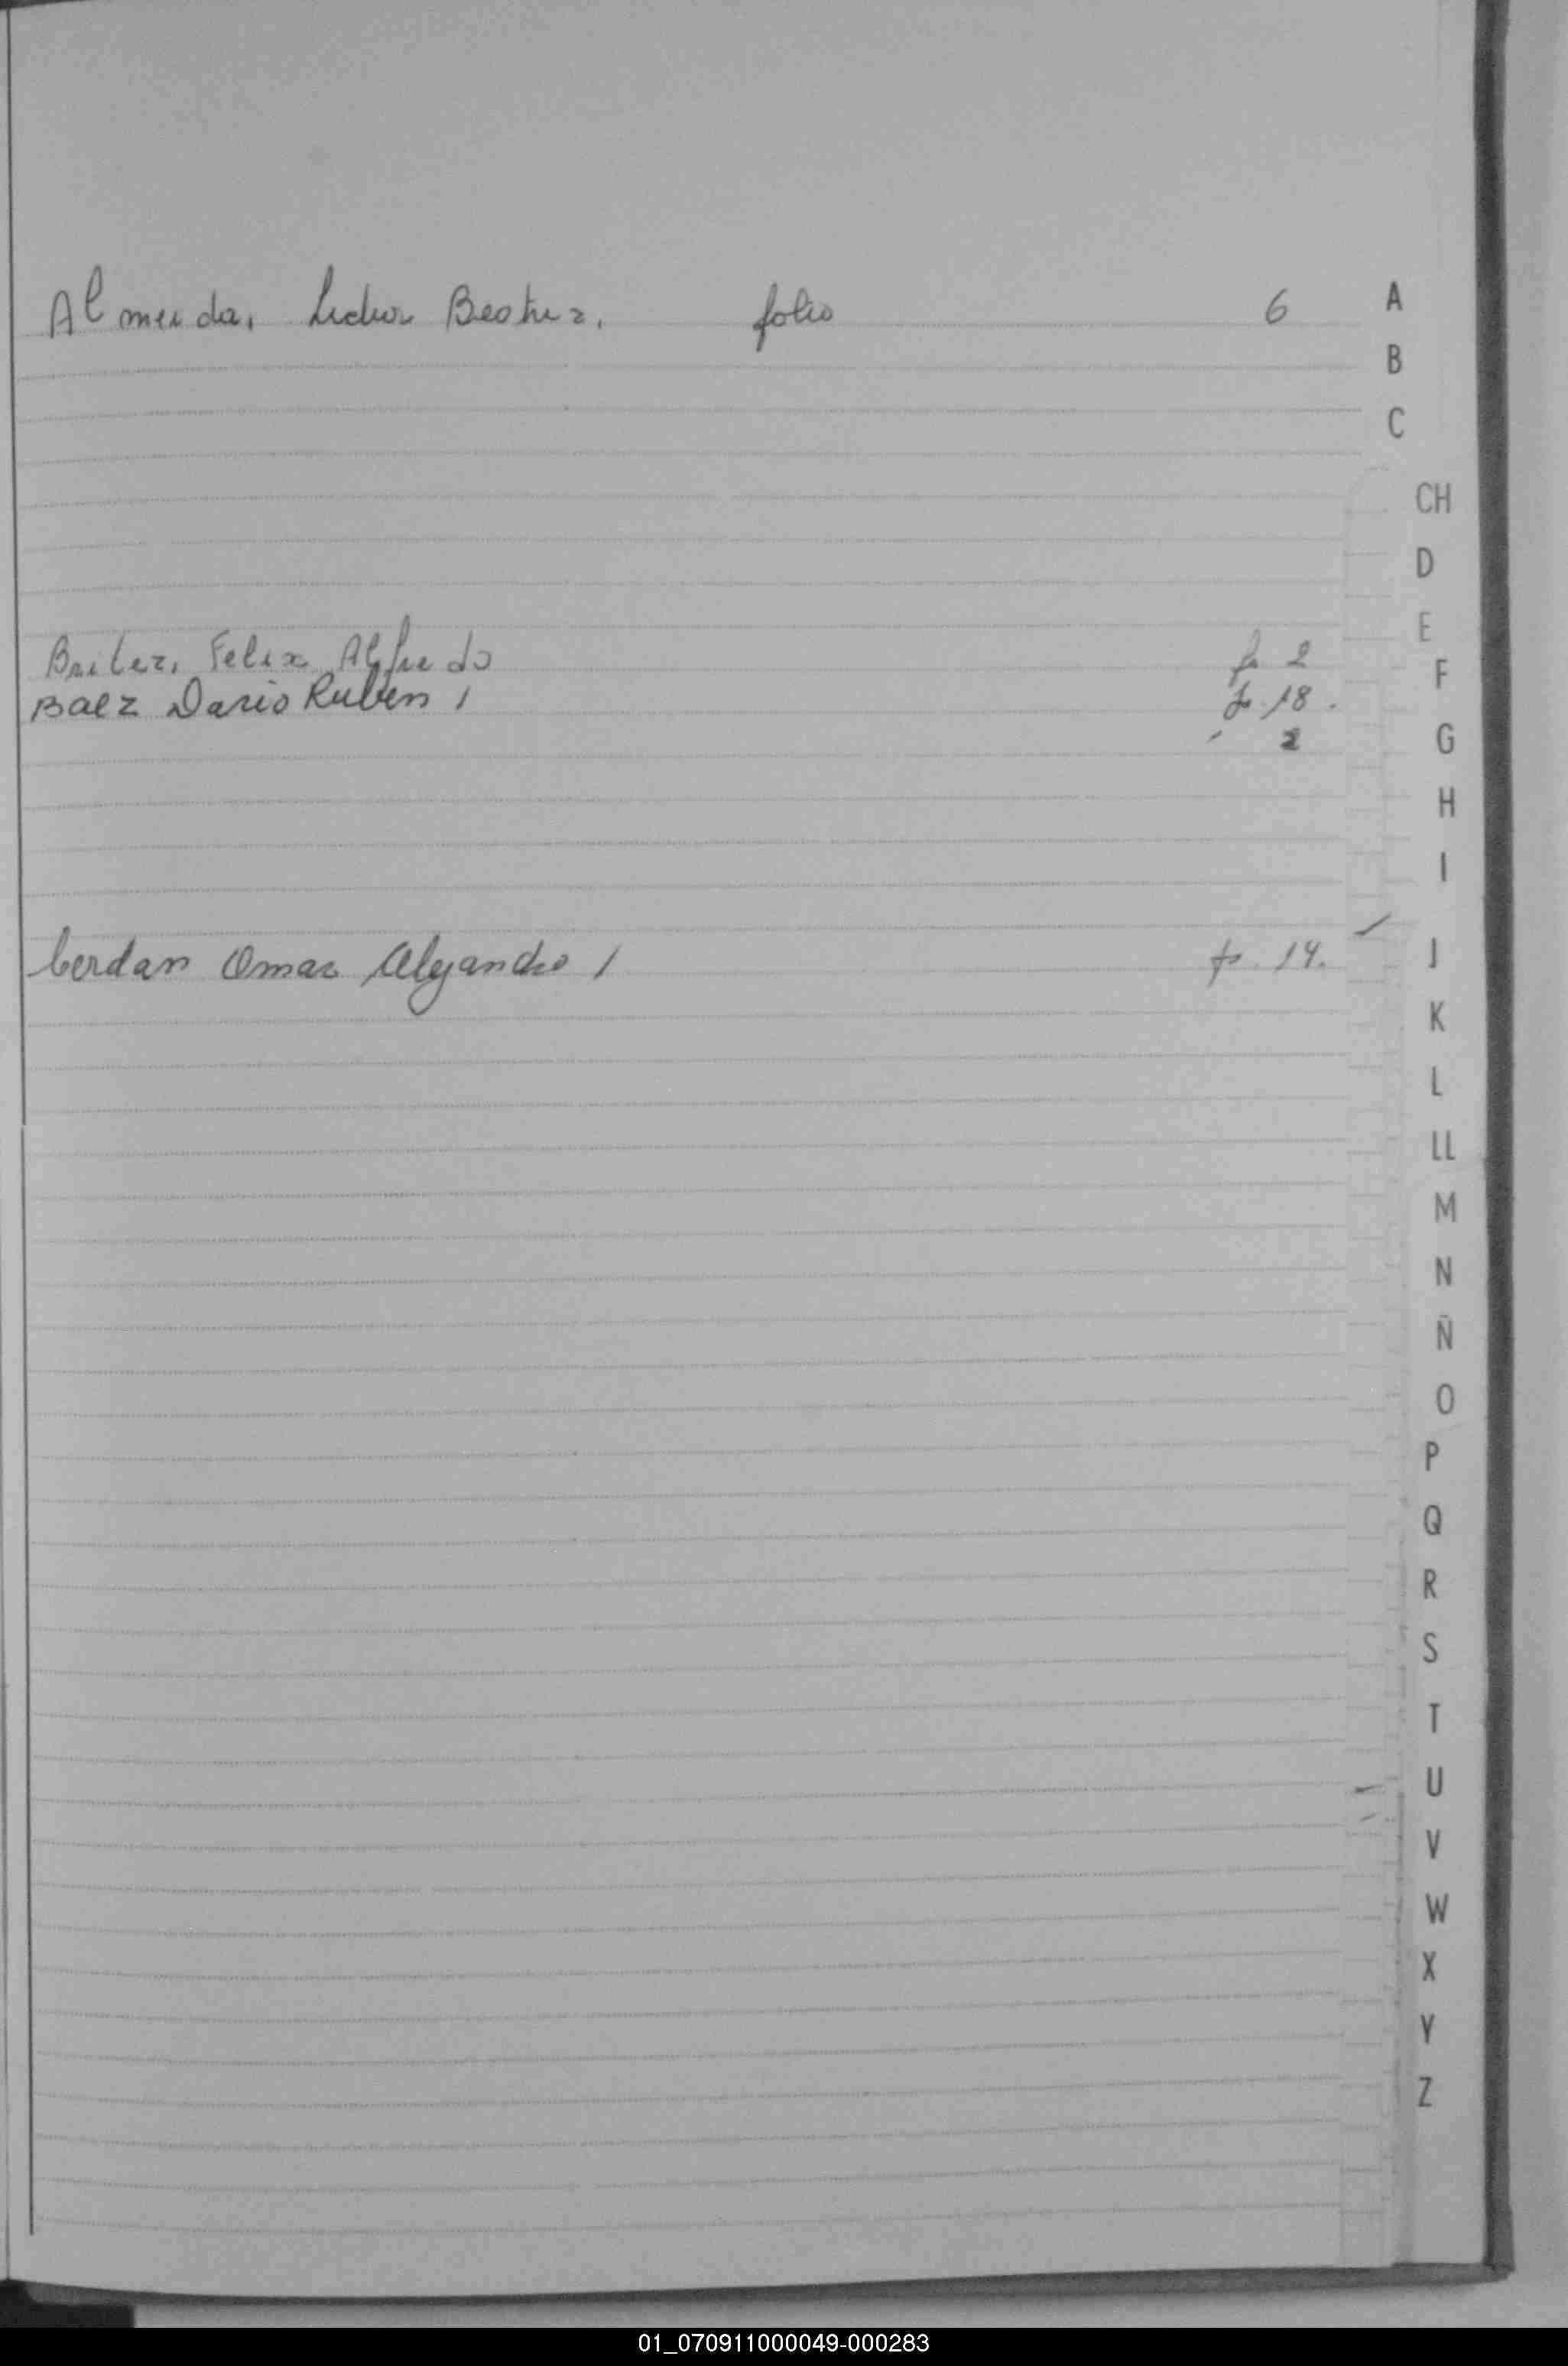 Almeida, Lidia Beatriz. folio 6
Britez, Felix Alfredo fo 2
Baez Dario Ruben, fo. 18.
2
Cerdan Omar Alejandro, fo. 14.
A
B
C
CH
D
E
F
G
H
I
J
K
L
LL
M
N
Ñ
O
P
Q
R
S
T
U
V
W
X
Y
Z
01_070911000049-000283